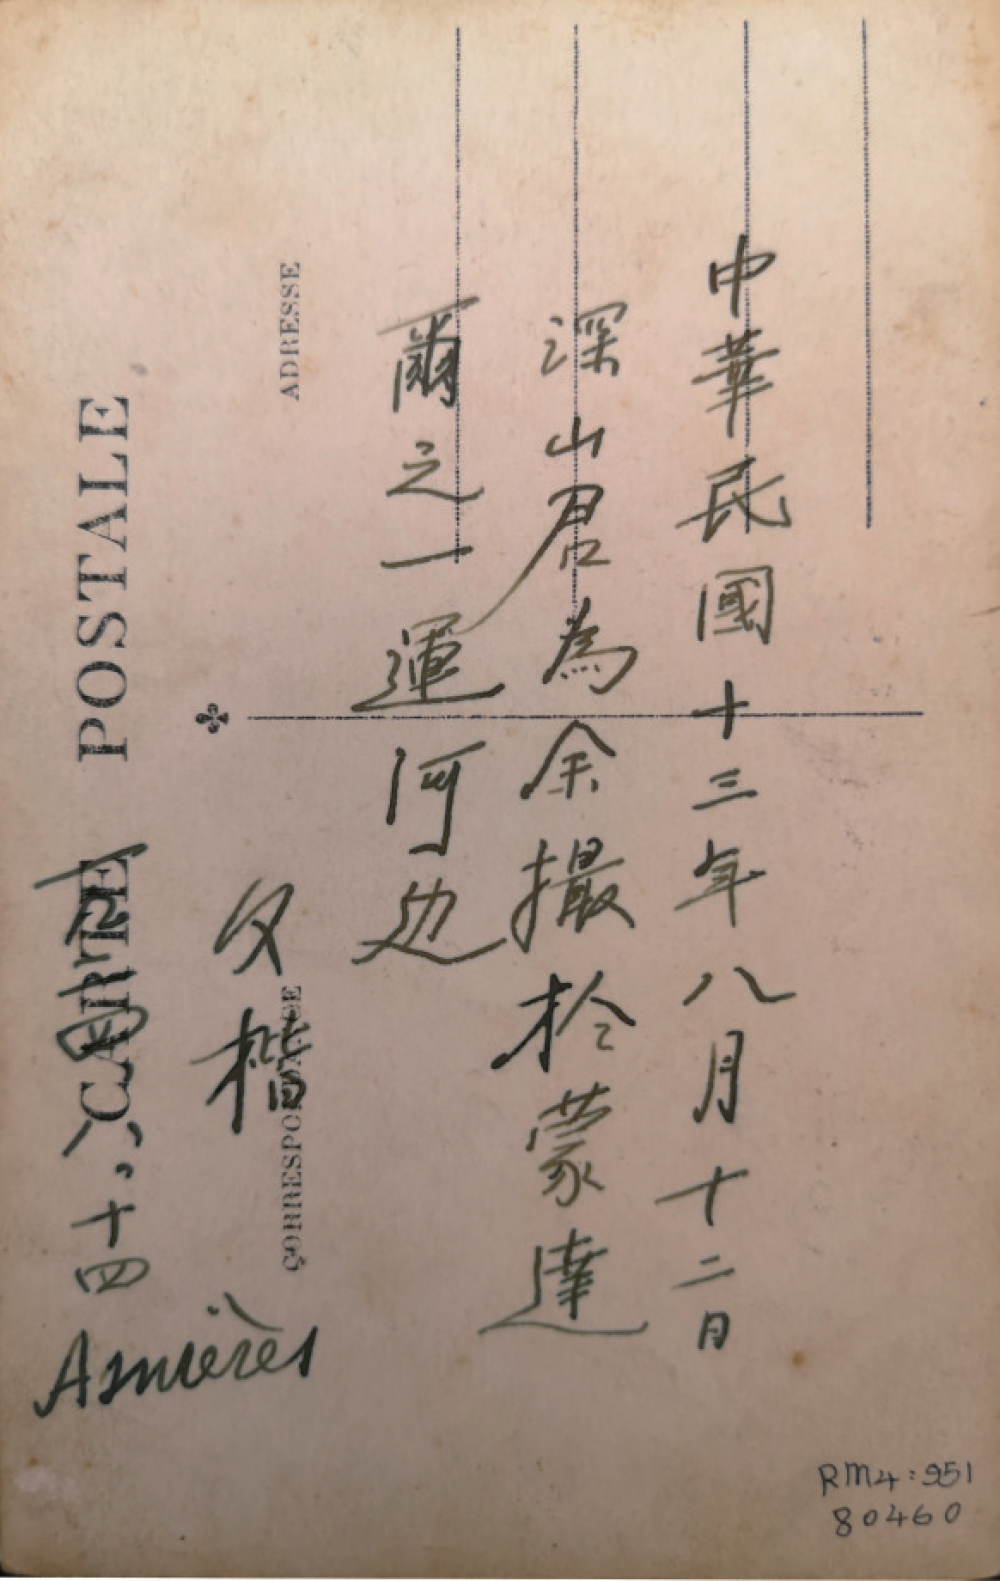 中華民國十三年八月十二日
深山君為余撮於蒙達
爾之一運河边
文楷
八,十四
Asnières
CARTE POSTALE
ADRESSE
CORRESPONDANCE
RM4:951
80460